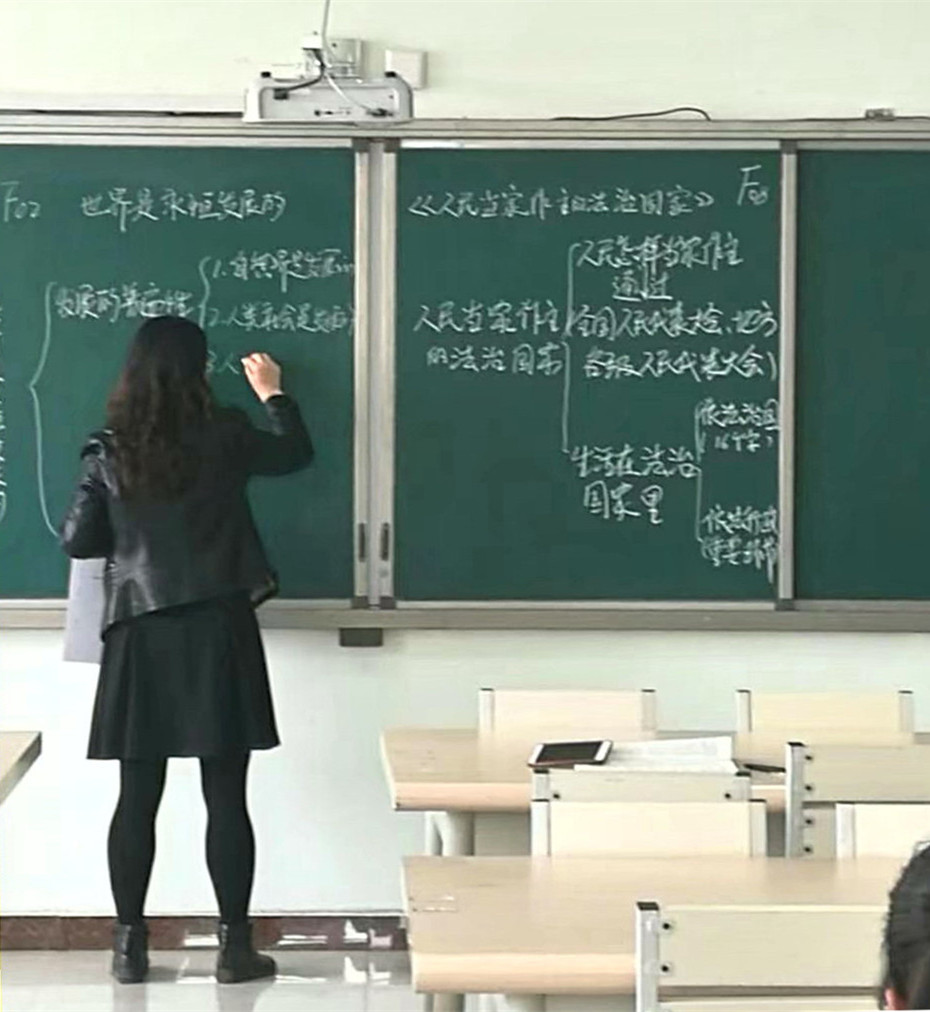 F02 世界是永恒发展的
发展的普遍性
1.自然界是发展的
2.人类社会是发展的
3人
《人民当家作主的法治国家》 F03
人民怎样当家作主
通过
人民当家作主
的法治国家
(全国人民代表大会、地方
各级人民代表大会)
生活在法治
国家里
依法治国
(16个字)
依法行政
重要环节